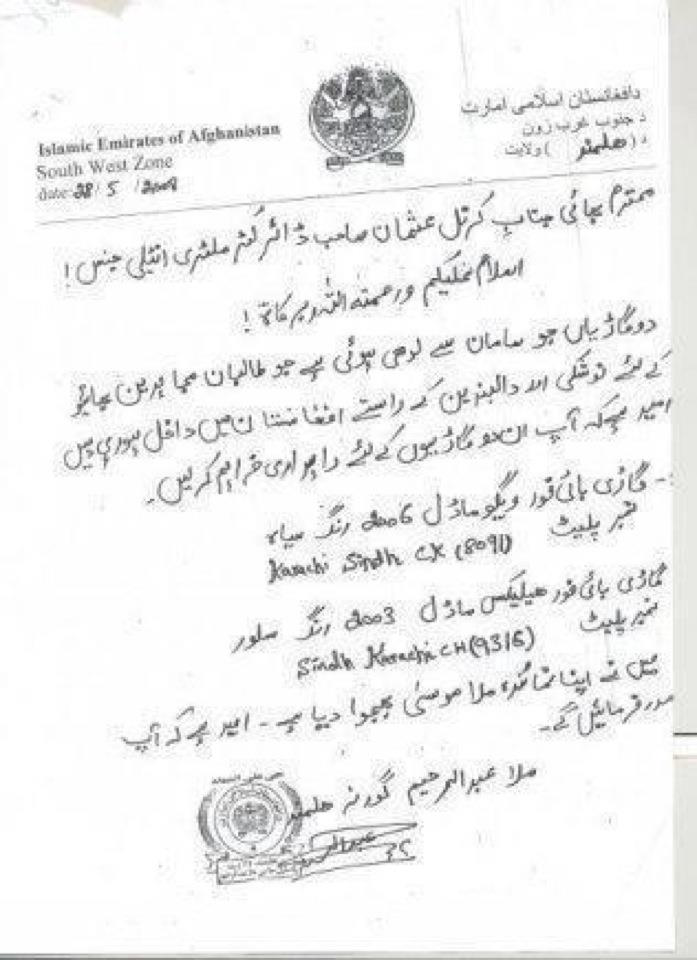 Islamic Emirates of Afghanistan
South West Zone
date: 28 / 5 / 2008
دافغانستان اسلامی امارت
د جنوب غرب زون
د ( هلمند ) ولایت
محترم بھائی جناب کرنل عثمان صاحب ڈائرکٹر ملٹری انٹیلی جنس !
اسلام علیکم ورحمتہ اللہ وبرکاتہ !
دو گاڑیاں جو سامان سے لوھی ہوئی ہے جو طالبان مجاہرین بھائیو
کے لئے نوشکی اور دالبندین کے راستے افغانستان میں داخل ہورہی ہیں
امیر ہیکہ آپ ان دو گاڑیوں کے لئے راہداری فراہم کریں۔
:- گاڑی ہائی فور ویگو ماڈل 2006 رنگ سیاہ
نمبر پلیٹ Karachi Sindh CX (8091)
گاڑی ہائی فور ھیلیکس ماڈل 2003 رنگ سلور
نمبر پلیٹ Sindh Karachi CH (9316)
میں نے اپنا نمائندہ ملا موسیٰ بھجوا دیا ہے۔ امیر ہے کہ آپ
مدد فرمائیں گے۔
ملا عبدالرحیم گورنر هلمند